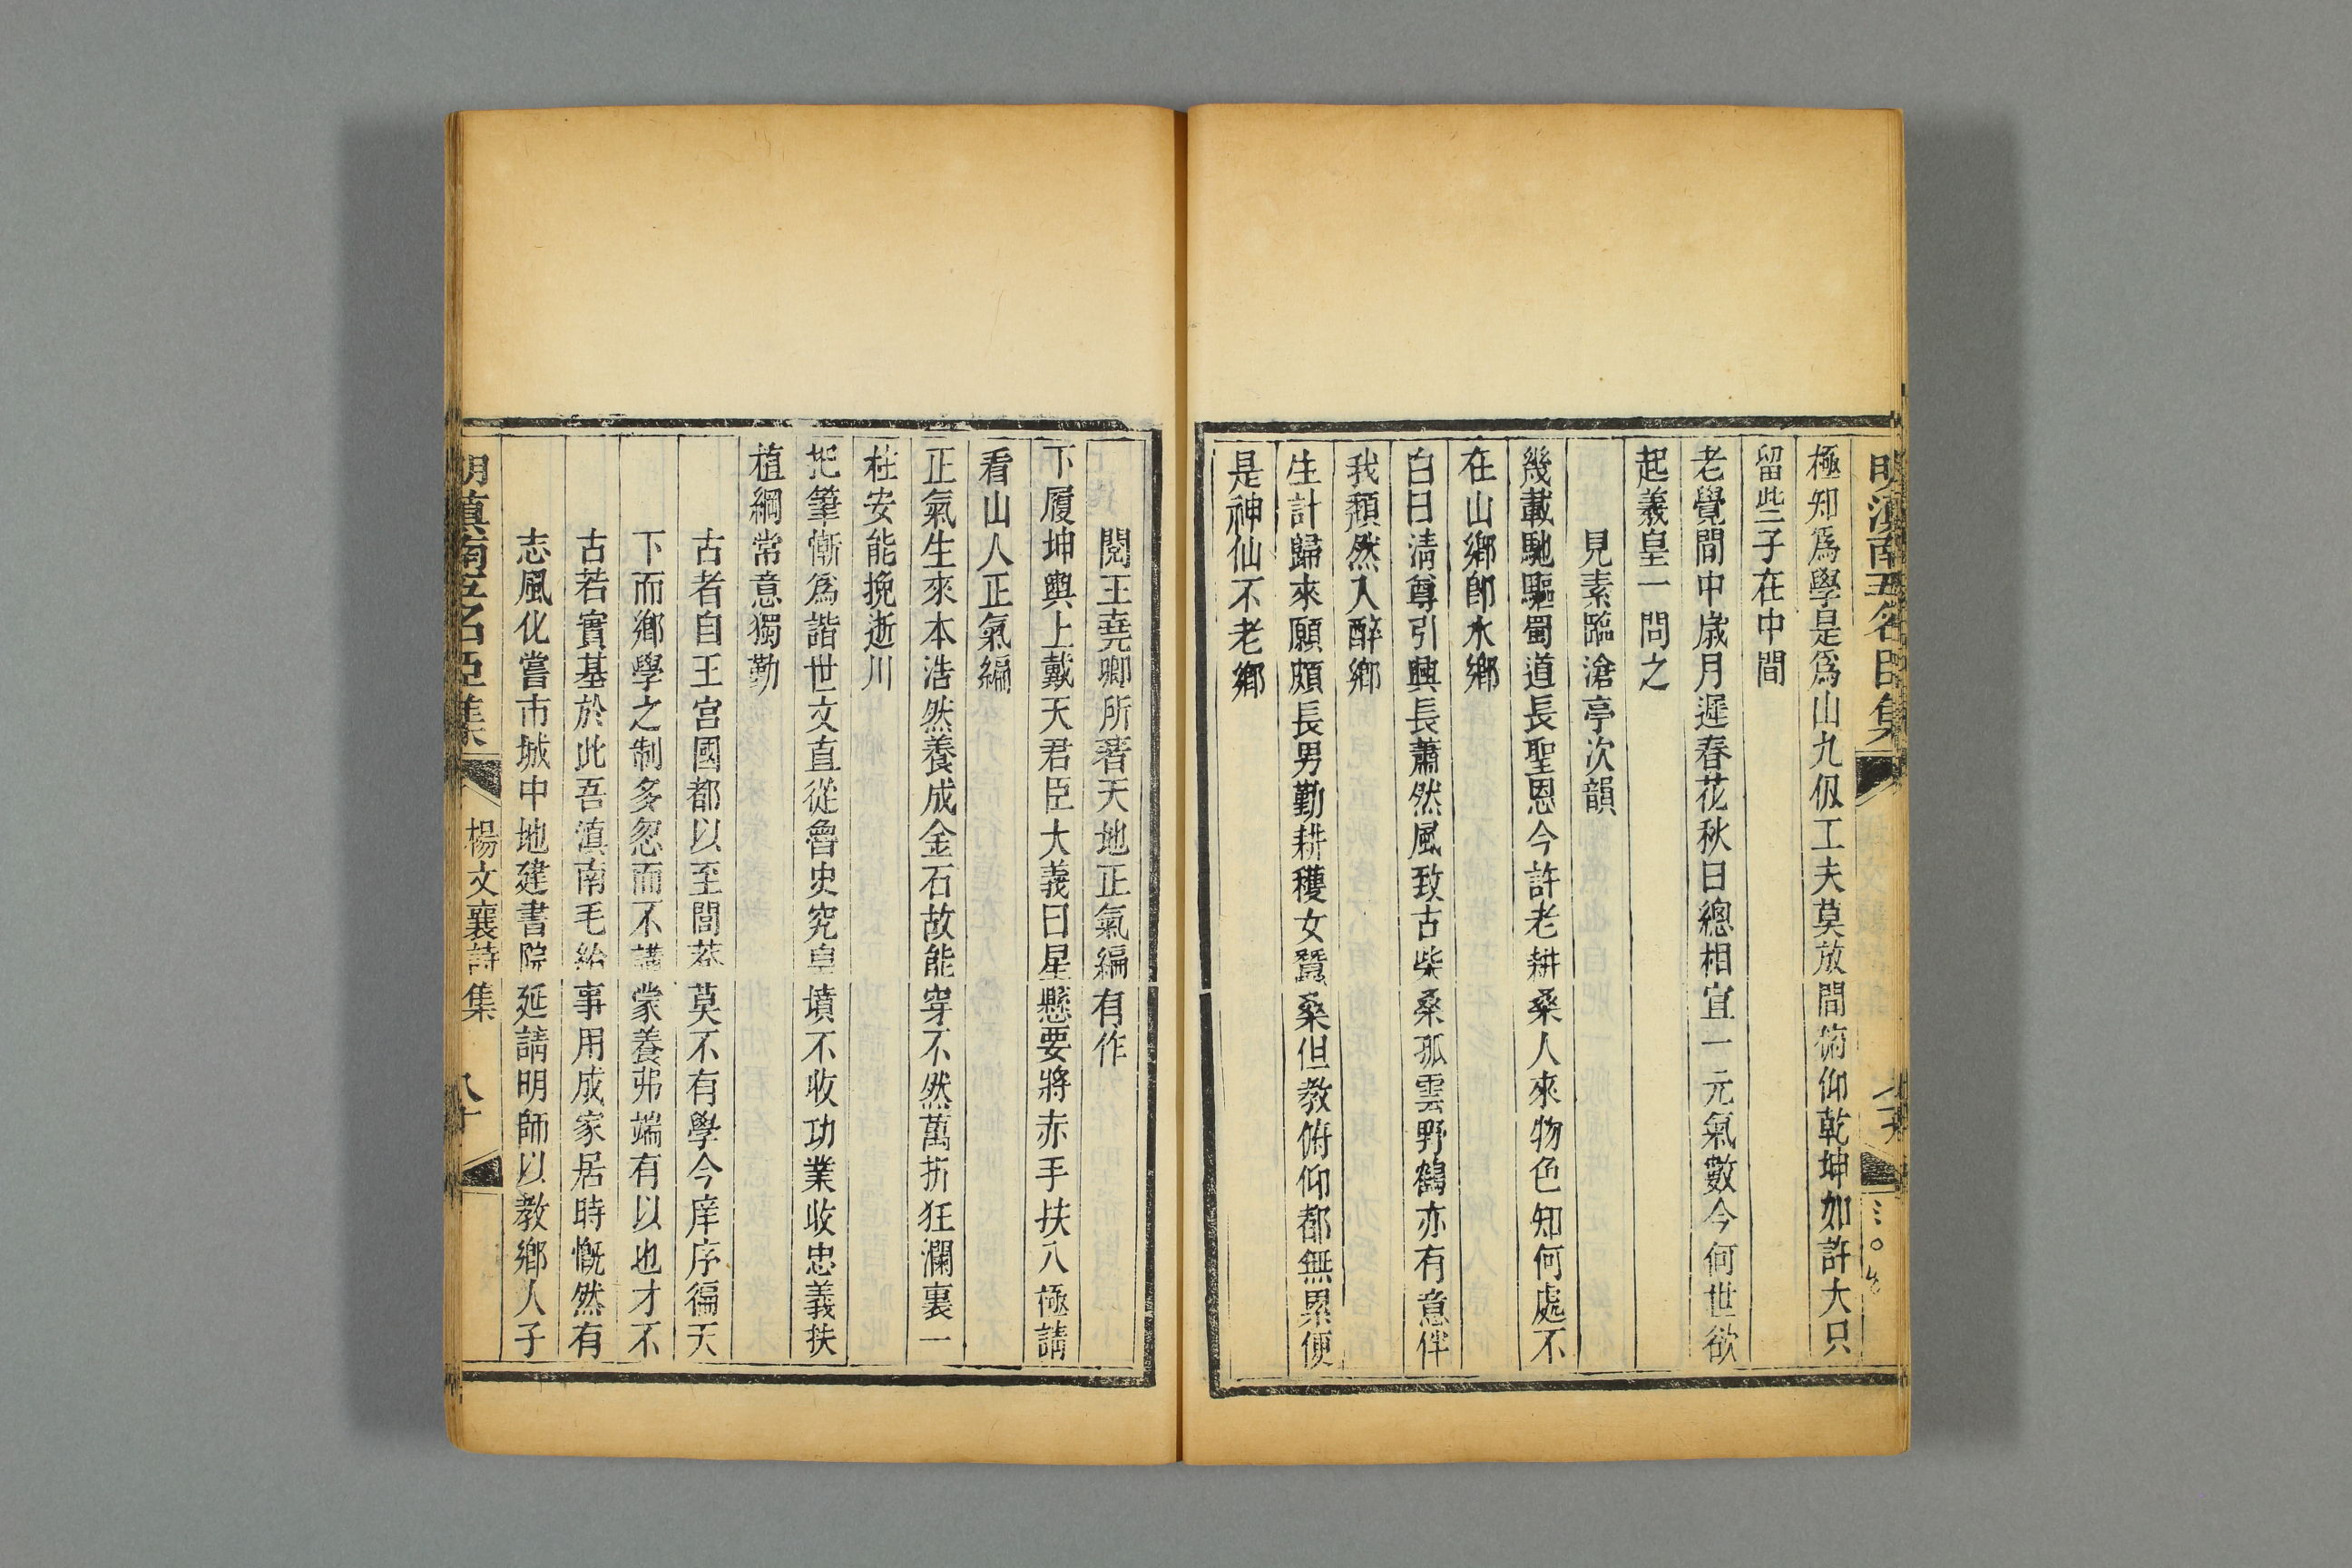 明滇南五名臣集
極知爲學是爲山九仭工夫莫放間俯仰乾坤如許大只
留些子在中間
老覺間中歲月遲春花秋日總相宜一元氣數今何世欲
起羲皇一問之
見素臨滄亭次韻
幾載馳驅蜀道長聖恩今許老耕桑人來物色知何處不
在山鄉卽水鄉
白日清尊引興長蕭然風致古柴桑孤雲野鶴亦有意伴
我頹然入醉鄉
生計歸來願頗長男勤耕穫女蠶桑但教俯仰都無累便
是神仙不老鄉
閱王堯卿所著天地正氣編有作
下履坤輿上戴天君臣大義日星懸要將赤手扶八極請
看山人正氣編
正氣生來本浩然養成金石故能穿不然萬折狂瀾裏一
柱安能挽逝川
把筆慚爲諧世文直從魯史究皇墳不收功業收忠義扶
植綱常意獨勤
古者自王宮國都以至閭巷莫不有學今庠序徧天
下而鄉學之制多忽而不講蒙養弗端有以也才不
古若實基於此吾滇南毛給事用成家居時慨然有
志風化嘗市城中地建書院延請明師以教鄉人子
明滇南五名臣集 楊文襄詩集 八十